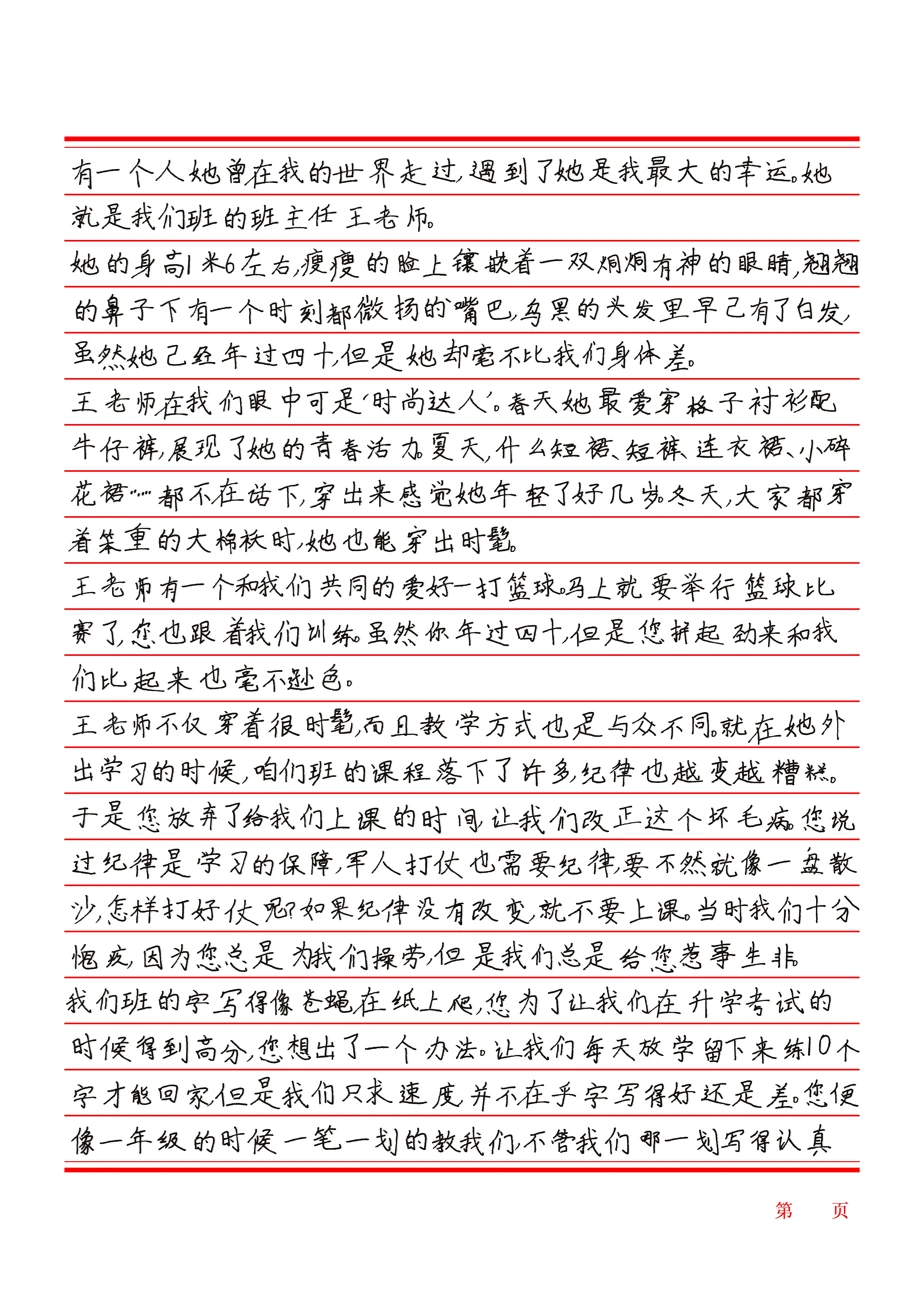 有一个人她曾在我的世界走过,遇到了她是我最大的幸运。她
就是我们班的班主任王老师。
她的身高1米6左右,瘦瘦的脸上镶嵌着一双炯炯有神的眼睛,翘翘
的鼻子下有一个时刻都微扬的嘴巴,乌黑的头发里早已有了白发,
虽然她已经年过四十,但是她却毫不比我们身体差。
王老师在我们眼中可是‘时尚达人’。春天她最爱穿格子衬衫配
牛仔裤,展现了她的青春活力。夏天,什么短裙、短裤、连衣裙、小碎
花裙……都不在话下,穿出来感觉她年轻了好几岁。冬天,大家都穿
着笨重的大棉袄时,她也能穿出时髦。
王老师有一个和我们共同的爱好一打篮球。马上就要举行篮球比
赛了,您也跟着我们训练。虽然你年过四十,但是您拼起劲来和我
们比起来也毫不逊色。
王老师不仅穿着很时髦,而且教学方式也是与众不同。就在她外
出学习的时候,咱们班的课程落下了许多,纪律也越变越糟糕。
于是您放弃了给我们上课的时间,让我们改正这个坏毛病。您说
过纪律是学习的保障,军人打仗也需要纪律,要不然就像一盘散
沙,怎样打好仗呢?如果纪律没有改变,就不要上课。当时我们十分
愧疚,因为您总是为我们操劳,但是我们总是给您惹事生非。
我们班的字写得像苍蝇在纸上爬,您为了让我们在升学考试的
时候得到高分,您想出了一个办法。让我们每天放学留下来练10个
字才能回家,但是我们只求速度,并不在乎字写得好还是差。您便
像一年级的时候一笔一划的教我们,不管我们哪一划写得认真
第 页